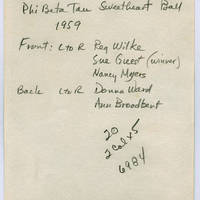 Phi Beta Tau Sweetheart Ball
1959
Front: L to R Reg Wilke
Sue Guest (winner)
Nancy Myers
Back L to R Donna Ward
Ann Broadbent
20
2 Col x 5
6984